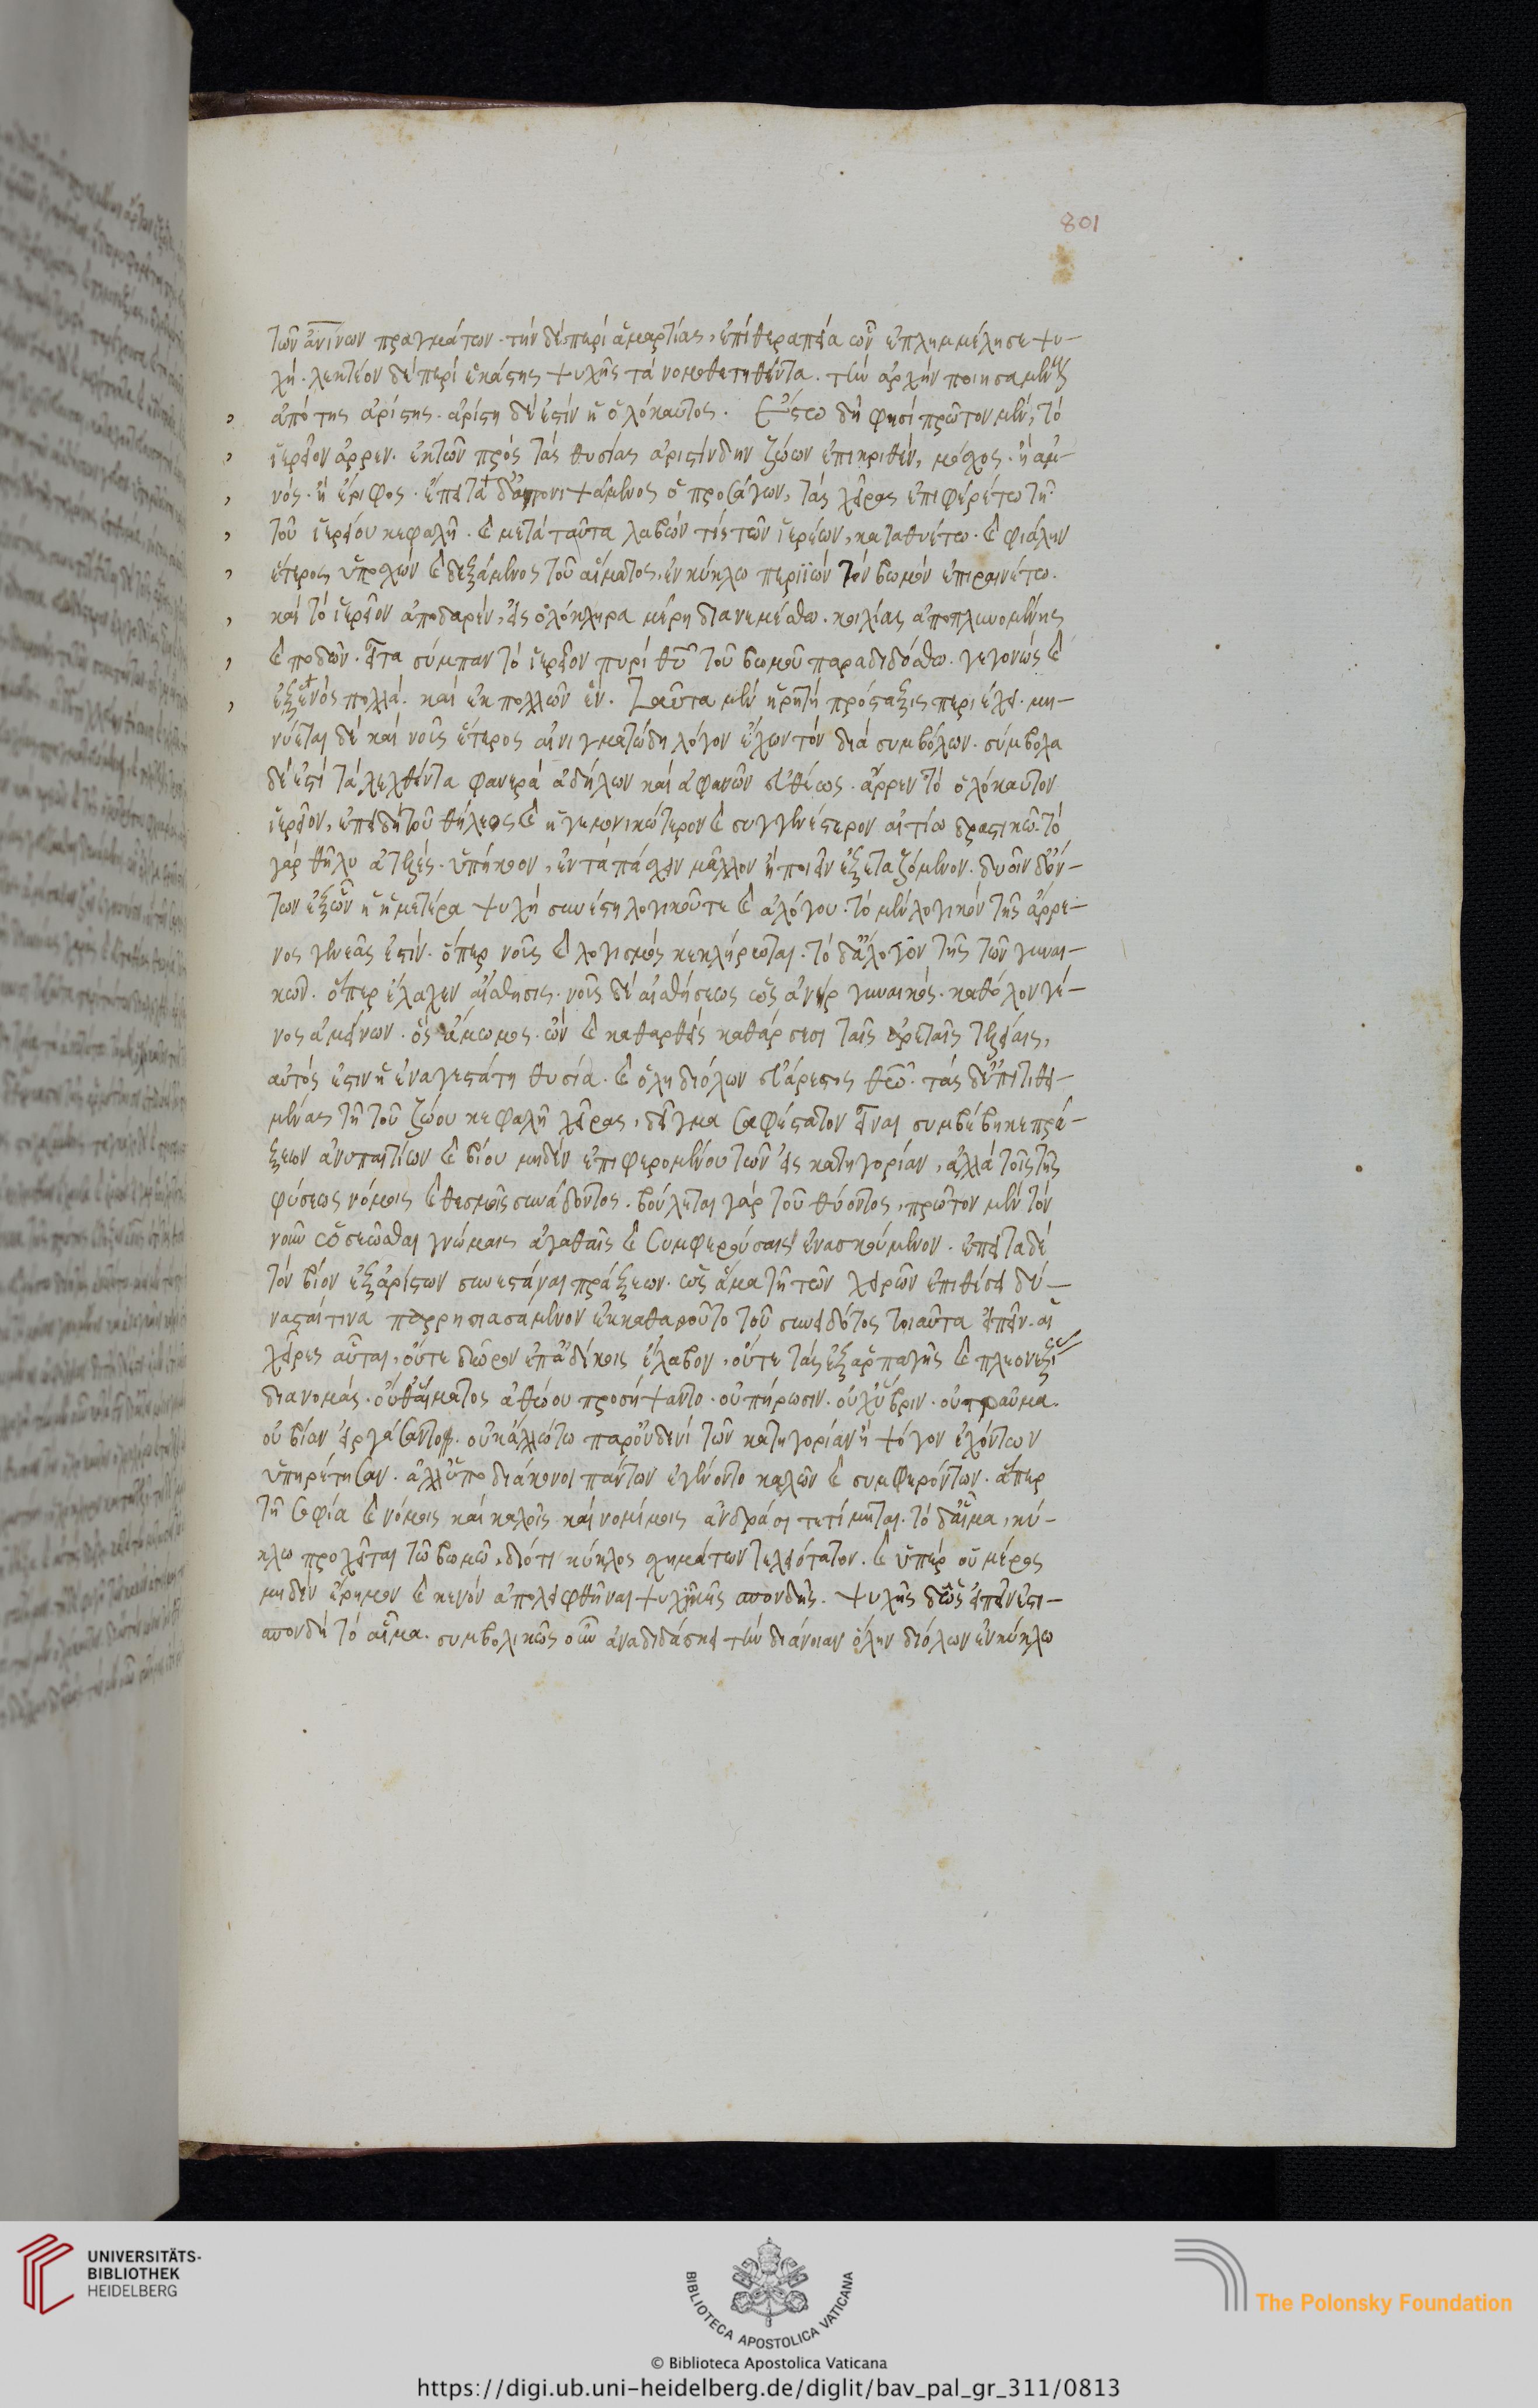 801
τῶν ἀν̅ίνων πραγμάτων· τὴν δὲ περὶ ἁμαρτίας, ἐπὶ θεραπεία ὧν ἐπλημμέλησε ψυ-
χή· λεκτέον δὲ περὶ ἑκάστης ψυχῆς τὰ νομοθετηθέντα. τὴν ἀρχὴν ποιησαμένους
ἀπὸ της ἀρίστης· ἀρίστη δέ ἐστιν ἡ ὁλόκαυτος. Ἔστω δή φησι πρῶτον μὲν, τὸ
ἱερεῖον ἄρρεν. ἐκ τῶν πρὸς τὰς θυσίας ἀριστίνδην ζώων ἐπικριθὲν, μόσχος· ἢ ἀμ-
νὸς· ἢ ἔριφος· ἔπειτα δ' ἀπονιψάμενος ὁ προσάγων, τὰς χεῖρας ἐπιφερέτω τῆ
τοῦ ἱερείου κεφαλῆ. καὶ μετὰ ταῦτα λαβών τίς τῶν ἱερέων, καταθυέτω. καὶ φιάλην
ἕτερος ὑποσχὼν καὶ δεξάμενος τοῦ αἵματος, ἐν κύκλω περιϊὼν τὸν βωμὸν ἐπιραινέτω.
καὶ τὸ ἱερεῖον ἀποδαρὲν, εἰς ὁλόκληρα μέρη διανεμέσθω. κοιλίας ἀποπλυνομένης
καὶ ποδῶν. εἶτα σύμπαν τὸ ἱερεῖον πυρὶ θυ̅ τοῦ βωμοῦ παραδιδόσθω. γεγονὼς καὶ
ἐξ ἑνὸς πολλά. καὶ ἐκ πολλῶν ἕν. Ταῦτα μὲν ἡ ῥητὴ πρόσταξις περιέχει· μη-
νύεται δὲ καὶ νοῦς ἕτερος αἰνιγματώδη λόγον ἔχων τὸν διὰ συμβόλων. σύμβολα
δέ ἐστι τὰ λεχθέντα φανερὰ ἀδήλων καὶ ἀφανῶν εὐθέως· ἄρρεν τὸ ὁλόκαυτον
ἱερεῖον, ἐπειδὴ τοῦ θήλεος καὶ ἡγεμονικώτερον καὶ συγγενέστερον αἰτίω δραστικῶ· τὸ
γὰρ θῆλυ ἀτελὲς· ὑπήκοον, ἐν τὰ πάσχειν μᾶλλον ἢ ποιεῖν ἐξεταζόμενον. δυοῖν δ' ὄν-
των ἐξ ὧν ἡ ἡμετέρα ψυχὴ συνέστη λογικοῦ τε καὶ ἀλόγου· τὸ μὲν λογικὸν τῆς ἄρρε-
νος γενεᾶς ἐστίν. ὅπερ νοῦς καὶ λογισμὸς κεκλήρωται. τὸ δ' ἄλογον τῆς τῶν γυναι-
κῶν. ὅπερ ἔλαχεν αἴσθησις. νοῦς δὲ αἰσθήσεως ὡς ἀνὴρ γυναικὸς. καθόλου γέ-
νος ἀμείνων· ὃς ἄμωμος. ὢν καὶ καθαρθεὶς καθάρσεσι ταῖς ἀρεταῖς τελείαις,
αὐτός ἐστιν ἡ ἐναγεστάτη θυσία. καὶ ὅλη δι' ὅλων εὐάρεστος θεῶ. τὰς δ' ἐπιτιθε-
μένας τῆ τοῦ ζώου κεφαλῆ χεῖρας, δεῖγμα σαφέστατον εἶναι συμβέβηκε πρά-
ξεων ἀνυπαιτίων καὶ βίου μηδὲν ἐπιφερομένου τῶν εἰς κατηγορίαν, ἀλλὰ τοῖς τῆς
φύσεως νόμοις καὶ θεσμοῖς συνάδοντος. βούλεται γὰρ τοῦ θύοντος, πρῶτον μὲν τὸν
νοῦν ὁσιῶσθαι γνώμαις ἀγαθαῖς καὶ συμφερούσαις ἐνασκούμενον. ἔπειτα δὲ
τὸν βίον ἐξ ἀρίστων συνεστάναι πράξεων. ὡς ἅμα τῆ τῶν χειρῶν ἐπιθέσει δύ-
νασθαί τινα παρρησιασάμενον ἐκ καθαροῦ τὸ τοῦ συνειδότος τοιαῦτα εἰπεῖν. αἱ
χεῖρες αὗται, οὔτε δῶρον ἐπ' ἀδίκοις ἔλαβον, οὔτε τὰς ἐξ ἁρπαγῆς καὶ πλεονεξίας
διανομάς. οὔθ' αἵματος ἀθώου προσήψαντο. οὐ πήρωσιν. οὐχ ὕβριν. οὐ τραῦμα.
οὐ βίαν εἰργάσαντο. οὐκ ἄλλό τω παρ' οὐδενὶ τῶν κατηγορίαν ἢ ψόγον ἐχόντων
ὑπηρέτησαν. ἀλλ' ὑποδιάκονοι πάντων ἐγένοντο καλῶν καὶ συμφερόντων. ἅπερ
τῆ σοφία καὶ νόμοις καὶ καλοῖς καὶ νομίμοις ἀνδράσι τετίμηται. τὸ δ' αἷμα, κύ-
κλω προχεῖται τῶ βωμῶ, διότι κύκλος σχημάτων τελειότατον. καὶ ὑπὲρ οὗ μέρος
μηδὲν ἔρημον καὶ κενὸν ἀπολειφθῆναι ψυχικῆς σπονδῆς. ψυχῆς δ' ὡς εἰπεῖν ἐστι-
σπονδὴ τὸ αἷμα. συμβολικῶς οὖν ἀναδιδάσκει τὴν διάνοιαν ὅλην δι' ὅλων ἐν κύκλω
UNIVERSITÄTS-
BIBLIOTHEK
HEIDELBERG
BIBLIOTECA APOSTOLICA VATICANA
© Biblioteca Apostolica Vaticana
The Polonsky Foundation
https://digi.ub.uni-heidelberg.de/diglit/bav_pal_gr_311/0813